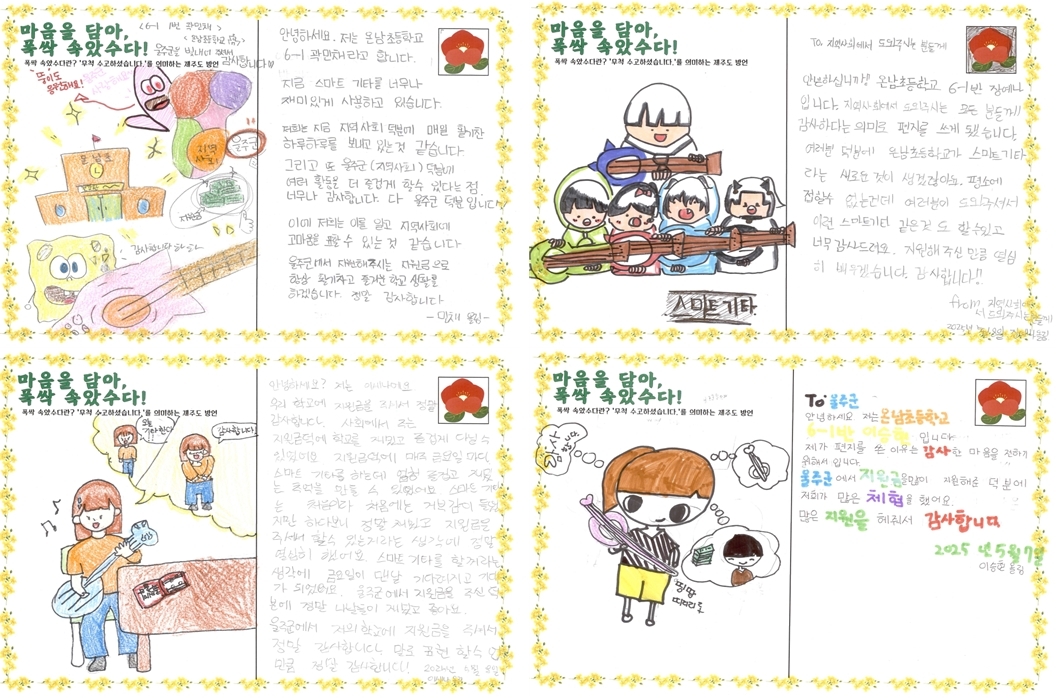 마음을 담아,
폭싹 속았수다!
폭싹 속았수다란? '무척 수고하셨습니다.'를 의미하는 제주도 방언
<6-1 1번 곽민채>
<온남초등학교
울주군을 빛내어 주셔서
감사합니다
뚱이도
응원해요!
지역
사회
울주군
온남초
지원금
감사합니다
안녕하세요. 저는 온남초등학교
6-1 곽민채라고 합니다.
지금 스마트 기타를 너무나
재미있게 사용하고 있습니다.
저희는 지금 지역사회 덕분에 매일 활기찬
하루하루를 보내고 있는것 같습니다.
그리고 또 울주군(지역사회) 덕분에
여러 활동을 더 즐겁게 할수 있다는 점
너무나 감사합니다. 다 울주군 덕분입니다!
이에 저희는 이를 알고 지역사회에
고마움을 표할 수 있는 것 같습니다
울주군에서 지원해주시는 지원금으로
항상 활기차고 즐거운 학교 생활을
하겠습니다. 정말 감사합니다
-민채 올림-
마음을 담아,
폭싹 속았수다!
폭싹 속았수다란? '무척 수고하셨습니다.'를 의미하는 제주도 방언
스마트기타
To. 지역사회에서 도와주시는 분들께
안녕하십니까! 온남초등학교 6-1반 장예나
입니다. 지역사회에서 도와주시는 모든 분들께
감사하다는 의미로 편지를 쓰게 됐습니다.
여러분 덕분에 온남초등학교가 스마트기타
라는 새로운 것이 생겼잖아요. 평소에
접할수 없는건데 여러분이 도와주셔서
이런 스마트기타 같은것 도 할수있고
너무 감사드려요. 지원해 주신 만큼 열심
히 배우겠습니다. 감사합니다!!
from. 지역사회에
서 도와주시는 분들께
마음을 담아,
폭싹 속았수다!
폭싹 속았수다란? '무척 수고하셨습니다.'를 의미하는 제주도 방언
오늘
기타한다!
감사합니다!
우리 학교에 지원금을 주셔서 정말
감사합니다. 사회에서 주는
지원금덕에 학교를 재밌고 즐겁게 다닐수
있었어요. 지원금덕에 매주 금요일 마다
스마트 기타를 하는데 엄청 즐겁고 재밌
는 추억을 만들 수 있었어요. 스마트 기타
는 처음이라 처음에는 거부감이 들었
지만 하다보니 정말 재밌고 지원금을
주셔서 할수 있는거라는 생각에 정말
열심히 했어요. 스마트 기타를 할거라는
생각에 금요일이 맨날 기다려지고 기대
가 되었어요. 울주군에서 지원금을 주신 덕
분에 정말 나날들이 재밌고 좋아요.
울주군에서 저희학교에 지원금을 주셔서
정말 감사합니다. 말로 표현 할수 없
만큼 정말 감사합니다!
마음을 담아,
폭싹 속았수다!
폭싹 속았수다란? '무척 수고하셨습니다.'를 의미하는 제주도 방언
띵띵
띠리리동
To 울주군
안녕하세요 저는 온남초등학교
6-1반 이승현 입니다
제가 편지를 쓴 이유는 감사한 마음을 전하기
위해서 입니다.
울주군에서 지원금을많이 지원해준 덕분에
저희가 많은 체험을 했어요.
많은 지원을 해줘서 감사합니다
2025년 5월 7일
이승현 올림